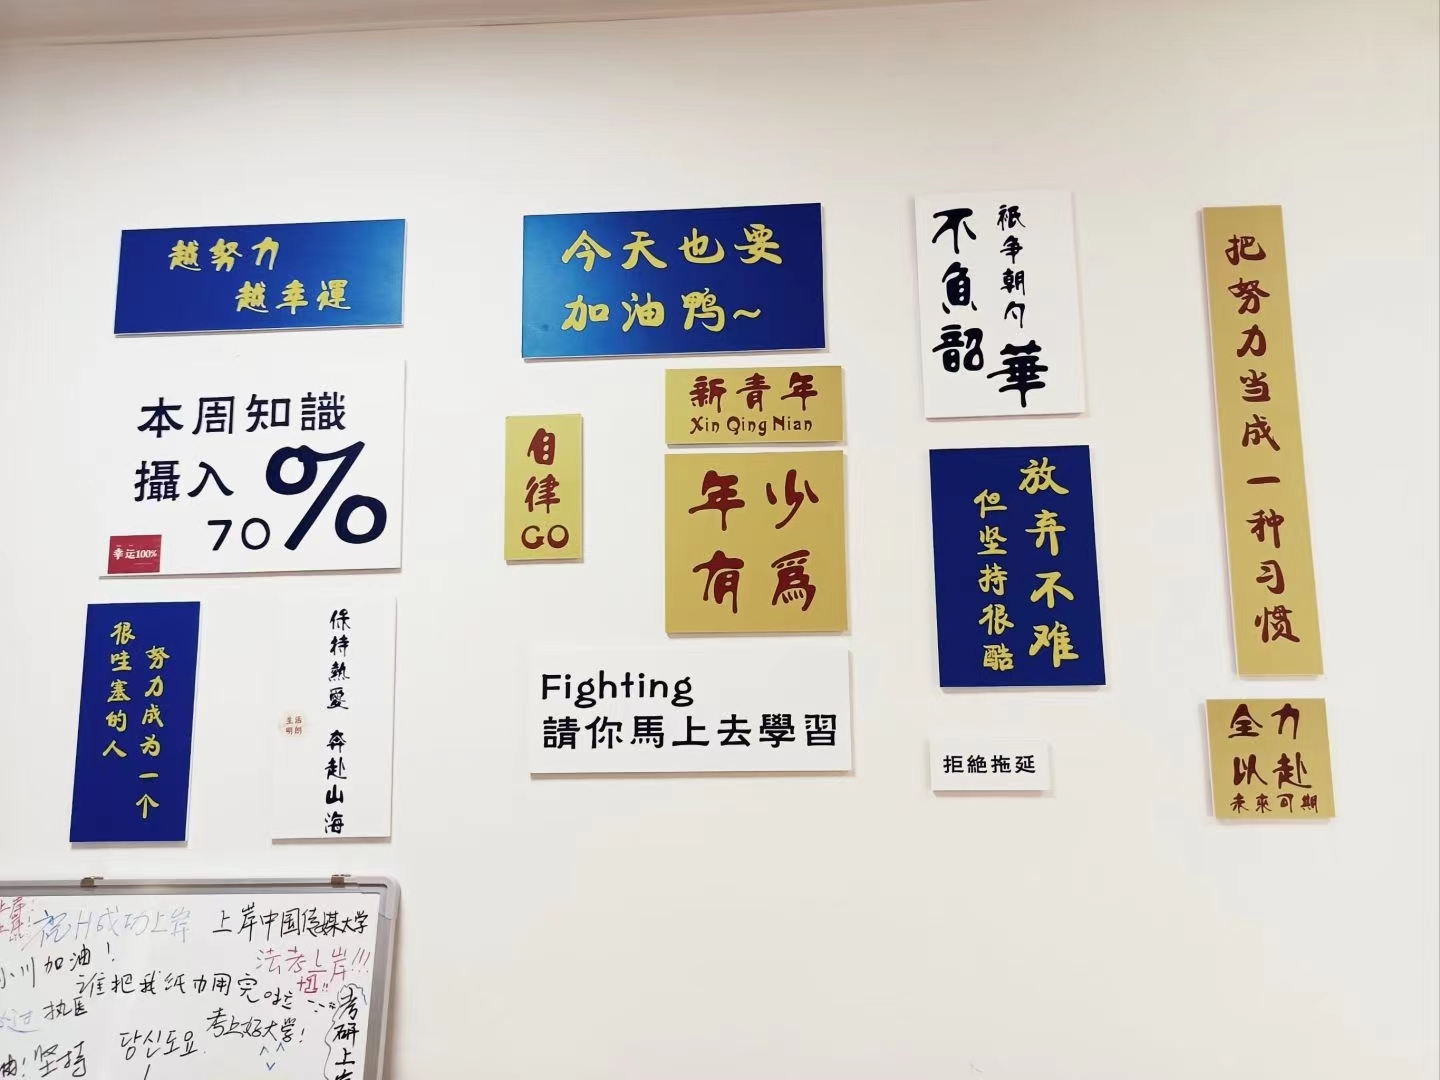 越努力
越幸運
本周知識
攝入70%
幸运100%
很哇塞的人
努力成为一个
保持熱愛 奔赴山海
生活
明朗
今天也要
加油鸭~
自律
GO
新青年
Xin Qing Nian
年少
有爲
Fighting
請你馬上去學習
祇争朝夕
不負韶華
放弃不难
但坚持很酷
拒絶拖延
把努力当成一种习惯
全力
以赴
未來可期
祝H成功上岸
上岸中国传媒大学
小川加油！
法考上岸!!!
谁把我纸巾用完啦
执医
당신도요
考上好大学！
坚持
考研上